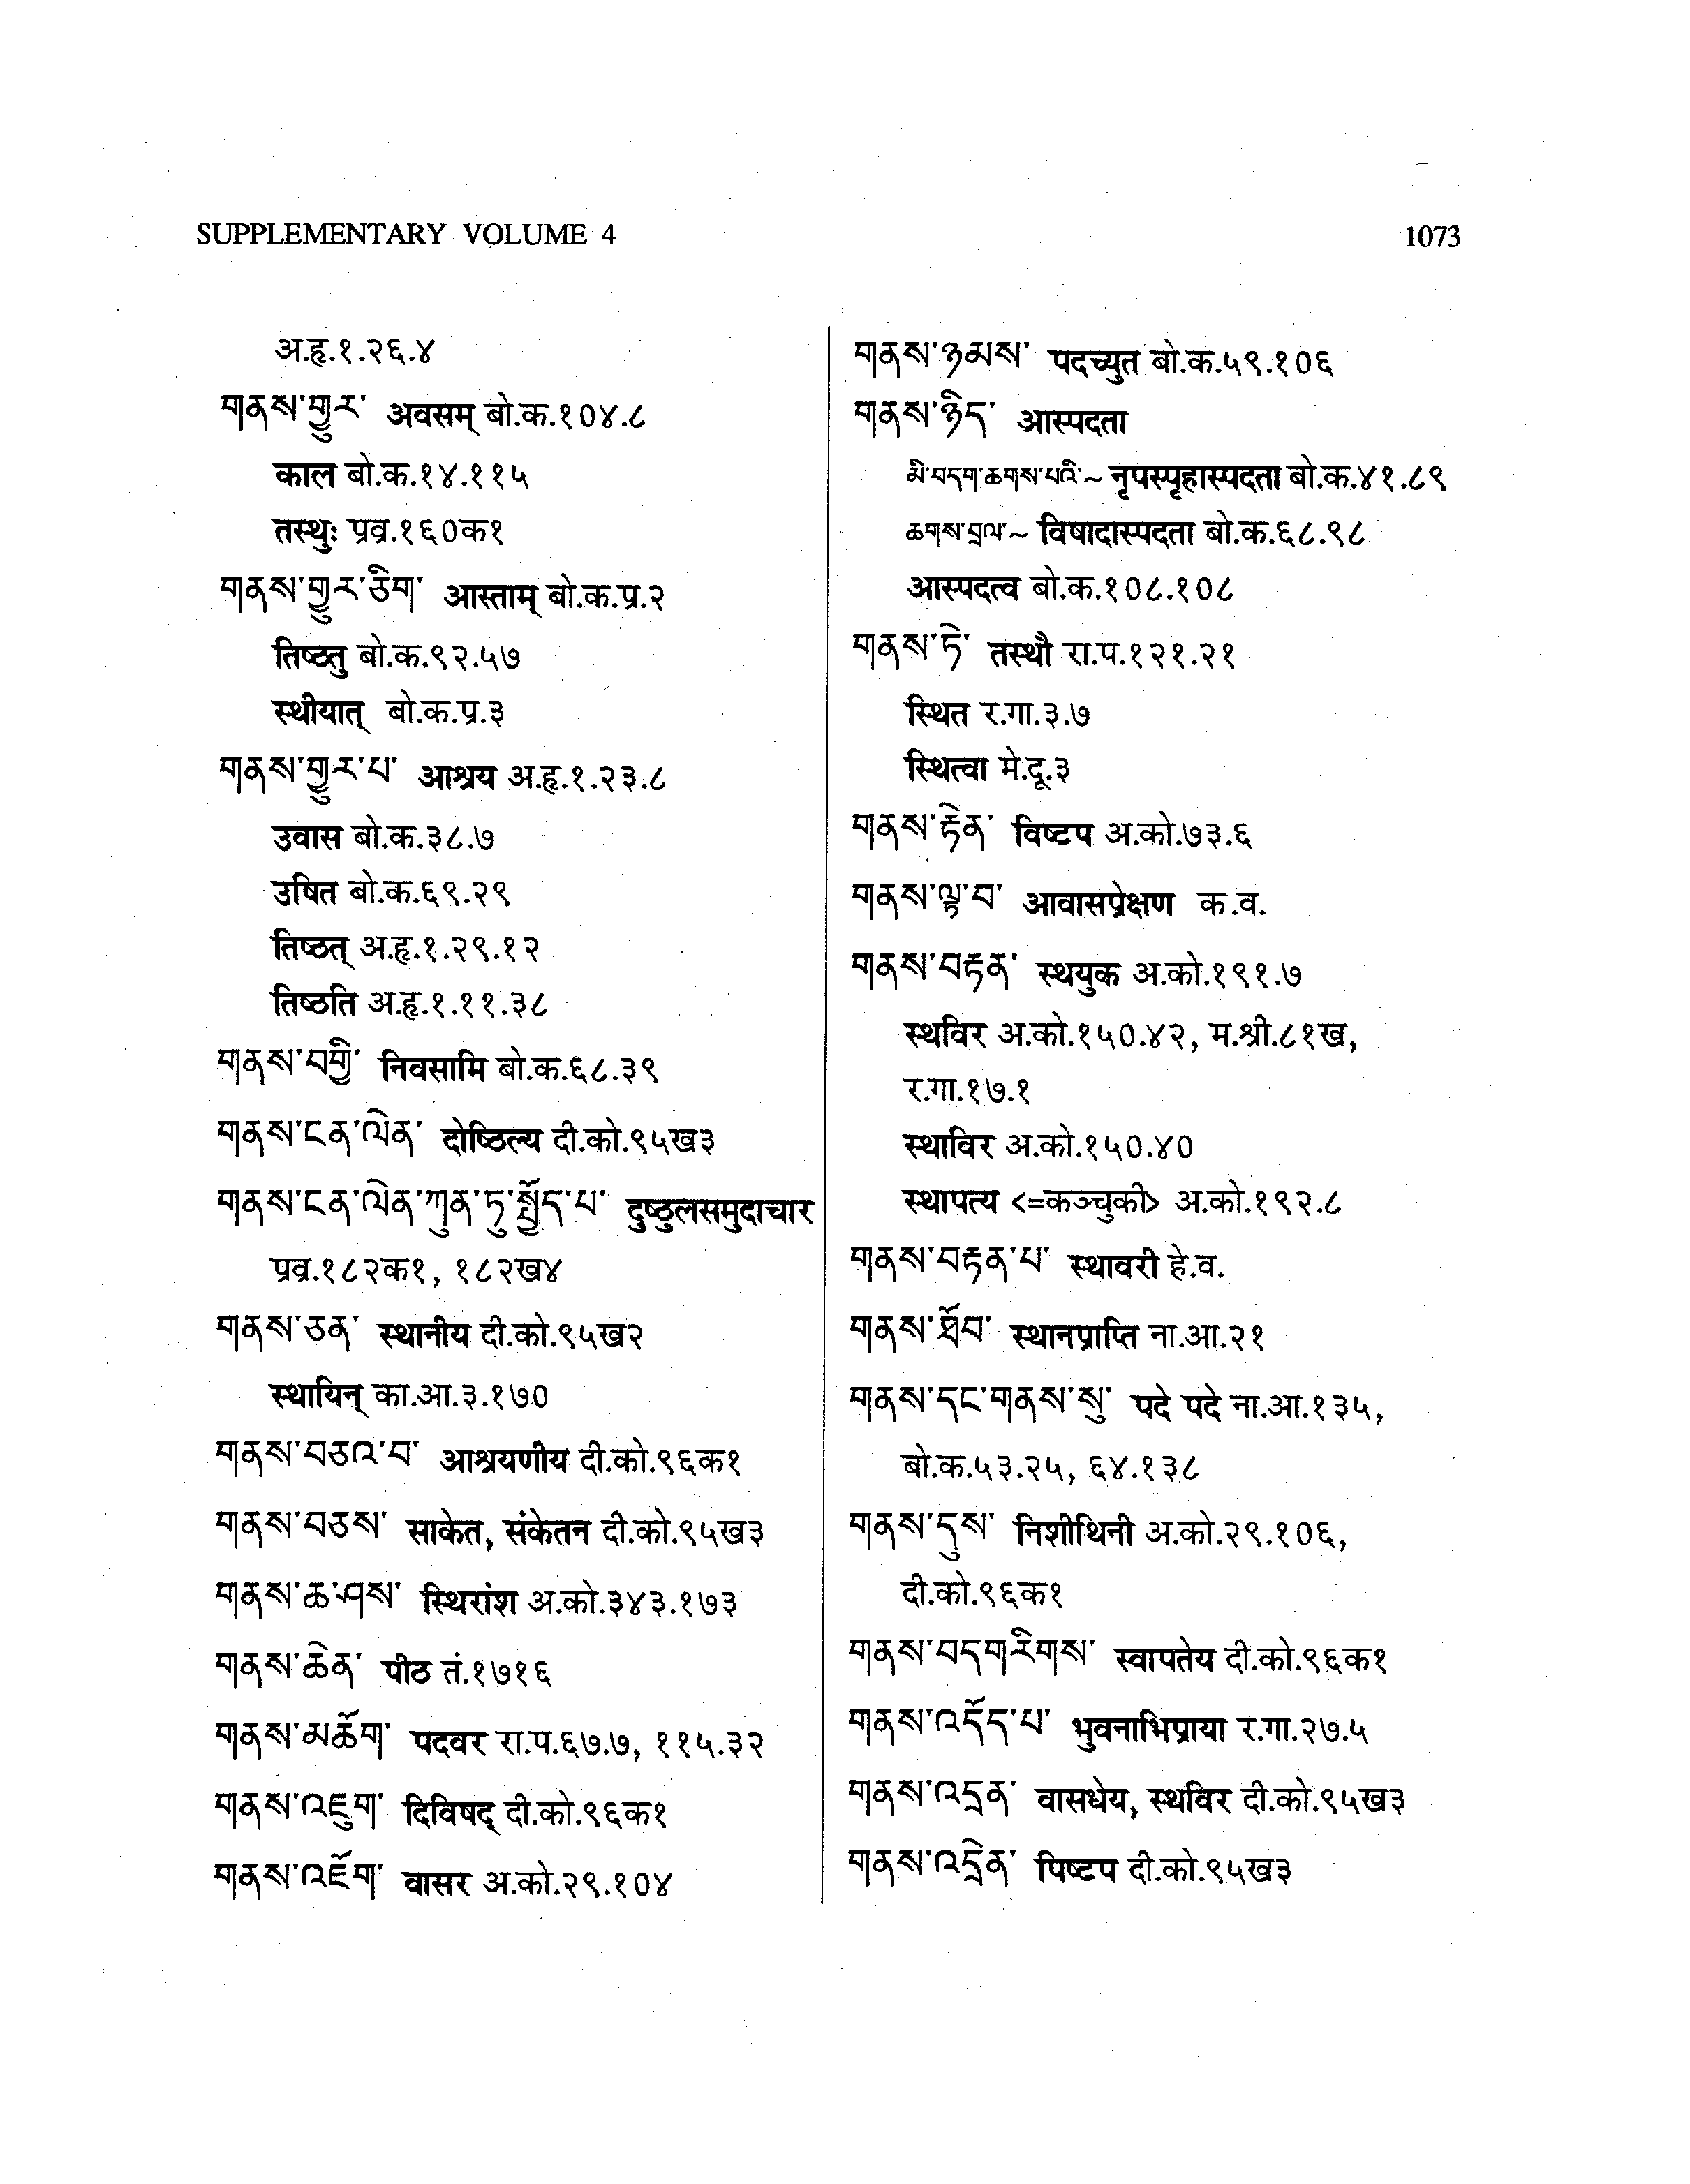 SUPPLEMENTARY VOLUME 4
1073
अ.हृ.१.२६.४
གནས་གྱུར་ अवसम् बो.क.१०४.८
काल बो.क.१४.११५
तस्थुः प्रव्र.१६०क१
གནས་གྱུར་ཅིག་ आस्ताम् बो.क.प्र.२
तिष्ठतु बो.क.९२.५७
स्थीयात् बो.क.प्र.३
གནས་གྱུར་པ་ आश्रय अ.हृ.१.२३.८
उवास बो.क.३८.७
उषित बो.क.६९.२९
तिष्ठत् अ.हृ.१.२९.१२
तिष्ठति अ.हृ.१.११.३८
གནས་བགྱི་ निवसामि बो.क.६८.३९
གནས་ངན་ལེན་ दोष्ठिल्य दी.को.९५ख३
གནས་ངན་ལེན་ཀུན་ཏུ་སྤྱོད་པ་ दुष्ठुलसमुदाचार
प्रव्र.१८२क१, १८२ख४
གནས་ཅན་ स्थानीय दी.को.९५ख२
स्थायिन् का.आ.३.१७०
གནས་བཅའ་བ་ आश्रयणीय दी.को.९६क१
གནས་བཅས་ साकेत, संकेतन दी.को.९५ख३
གནས་ཆ་ཤས་ स्थिरांश अ.को.३४३.१७३
གནས་ཆེན་ पीठ तं.१७१६
གནས་མཆོག་ पदवर रा.प.६७.७, ११५.३२
གནས་འཇུག་ दिविषद् दी.को.९६क१
གནས་འཇོག་ वासर अ.को.२९.१०४
གནས་ཉམས་ पदच्युत बो.क.५९.१०६
གནས་ཉིད་ आस्पदता
མི་བདག་ཆགས་པའི་~ नृपस्पृहास्पदता बो.क.४१.८९
ཆགས་བྲལ་~ विषादास्पदता बो.क.६८.९८
आस्पदत्व बो.क.१०८.१०८
གནས་ཏེ་ तस्थौ रा.प.१२१.२१
स्थित र.गा.३.७
स्थित्वा मे.दू.३
གནས་རྟེན་ विष्टप अ.को.७३.६
གནས་ལྟ་བ་ आवासप्रेक्षण क.व.
གནས་བརྟན་ स्थयुक अ.को.१९१.७
स्थविर अ.को.१५०.४२, म.श्री.८१ख,
र.गा.१७.१
स्थाविर अ.को.१५०.४०
स्थापत्य <=कञ्चुकी> अ.को.१९२.८
གནས་བརྟན་པ་ स्थावरी हे.व.
གནས་ཐོབ་ स्थानप्राप्ति ना.आ.२१
གནས་དང་གནས་སུ་ पदे पदे ना.आ.१३५,
बो.क.५३.२५, ६४.१३८
གནས་དུས་ निशीथिनी अ.को.२९.१०६,
दी.को.९६क१
གནས་བདག་རིགས་ स्वापतेय दी.को.९६क१
གནས་འདོད་པ་ भुवनाभिप्राया र.गा.२७.५
གནས་འདྲན་ वासधेय, स्थविर दी.को.९५ख३
གནས་འདྲེན་ पिष्टप दी.को.९५ख३